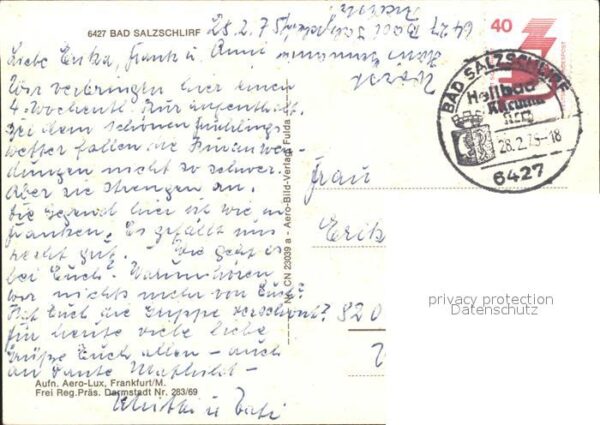 6427 BAD SALZSCHLIRF 28.2.75
Liebe Erika, Frank u. Anni
Wir verbringen hier einen
4-wöchentl. Kuraufenthalt.
Bei dem schönen Frühlings
wetter fallen die Kuranwen-
dungen nicht so schwer.
Aber sie strengen an.
Die Gegend hier ist wie in
Franken. Es gefällt uns
recht gut. Wie geht es
bei Euch? Warum hören
wir nichts mehr von Euch?
Hat Euch die Grippe verschont?
Für heute viele liebe
Grüße Euch allen - auch
an Tante Mathild -
6427 Bad
Nr. CN 23039 a - Aero-Bild-Verlag, Fulda
40
BUNDESPOST
BAD SALZSCHLIRF
Heilbad
28.2.75-18
6427
Frau
Erik
820
privacy protection
Datenschutz
Aufn. Aero-Lux, Frankfurt/M.
Frei Reg.Präs. Darmstadt Nr. 283/69